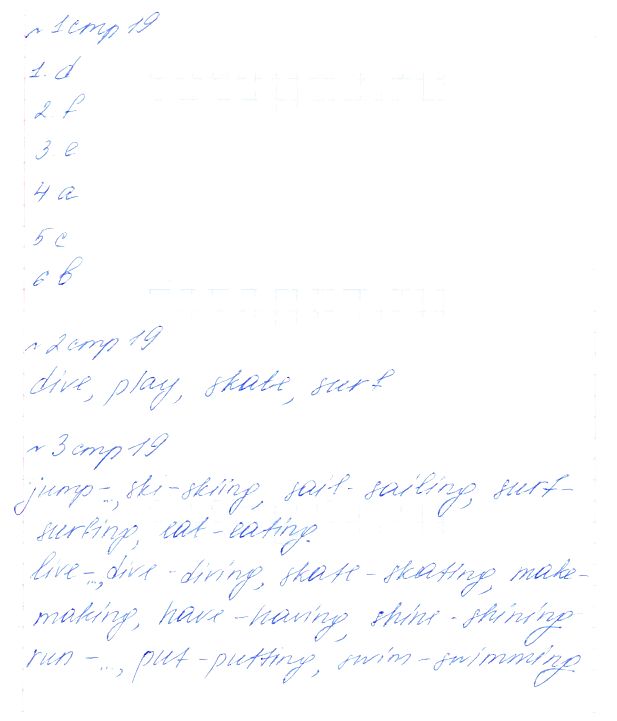 № 1 стр 19
1. d
2. f
3 e
4 a
5 c
6 b
№ 2 стр 19
dive, play, skate, surf
№ 3 стр 19
jump-..., ski-skiing, sail-sailing, surf-
surfing, eat-eating.
live-..., dive-diving, skate-skating, make-
making, have-having, shine-shining
run-..., put-putting, swim-swimming.